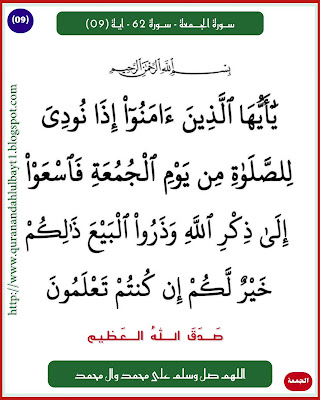 (09)
سورة الجمعة - سورة 62 - اية (09)
بِسْمِ اللَّهِ الرَّحْمَٰنِ الرَّحِيمِ
يَٰٓأَيُّهَا ٱلَّذِينَ ءَامَنُوٓا۟ إِذَا نُودِىَ
لِلصَّلَوٰةِ مِن يَوْمِ ٱلْجُمُعَةِ فَٱسْعَوْا۟
إِلَىٰ ذِكْرِ ٱللَّهِ وَذَرُوا۟ ٱلْبَيْعَ ذَٰلِكُمْ
خَيْرٌ لَّكُمْ إِن كُنتُمْ تَعْلَمُونَ
صَدَقَ اللهُ العَظيم
اللهم صل وسلم على محمد وال محمد
الجمعة
http://www.quranandahlulbayt1.blogspot.com